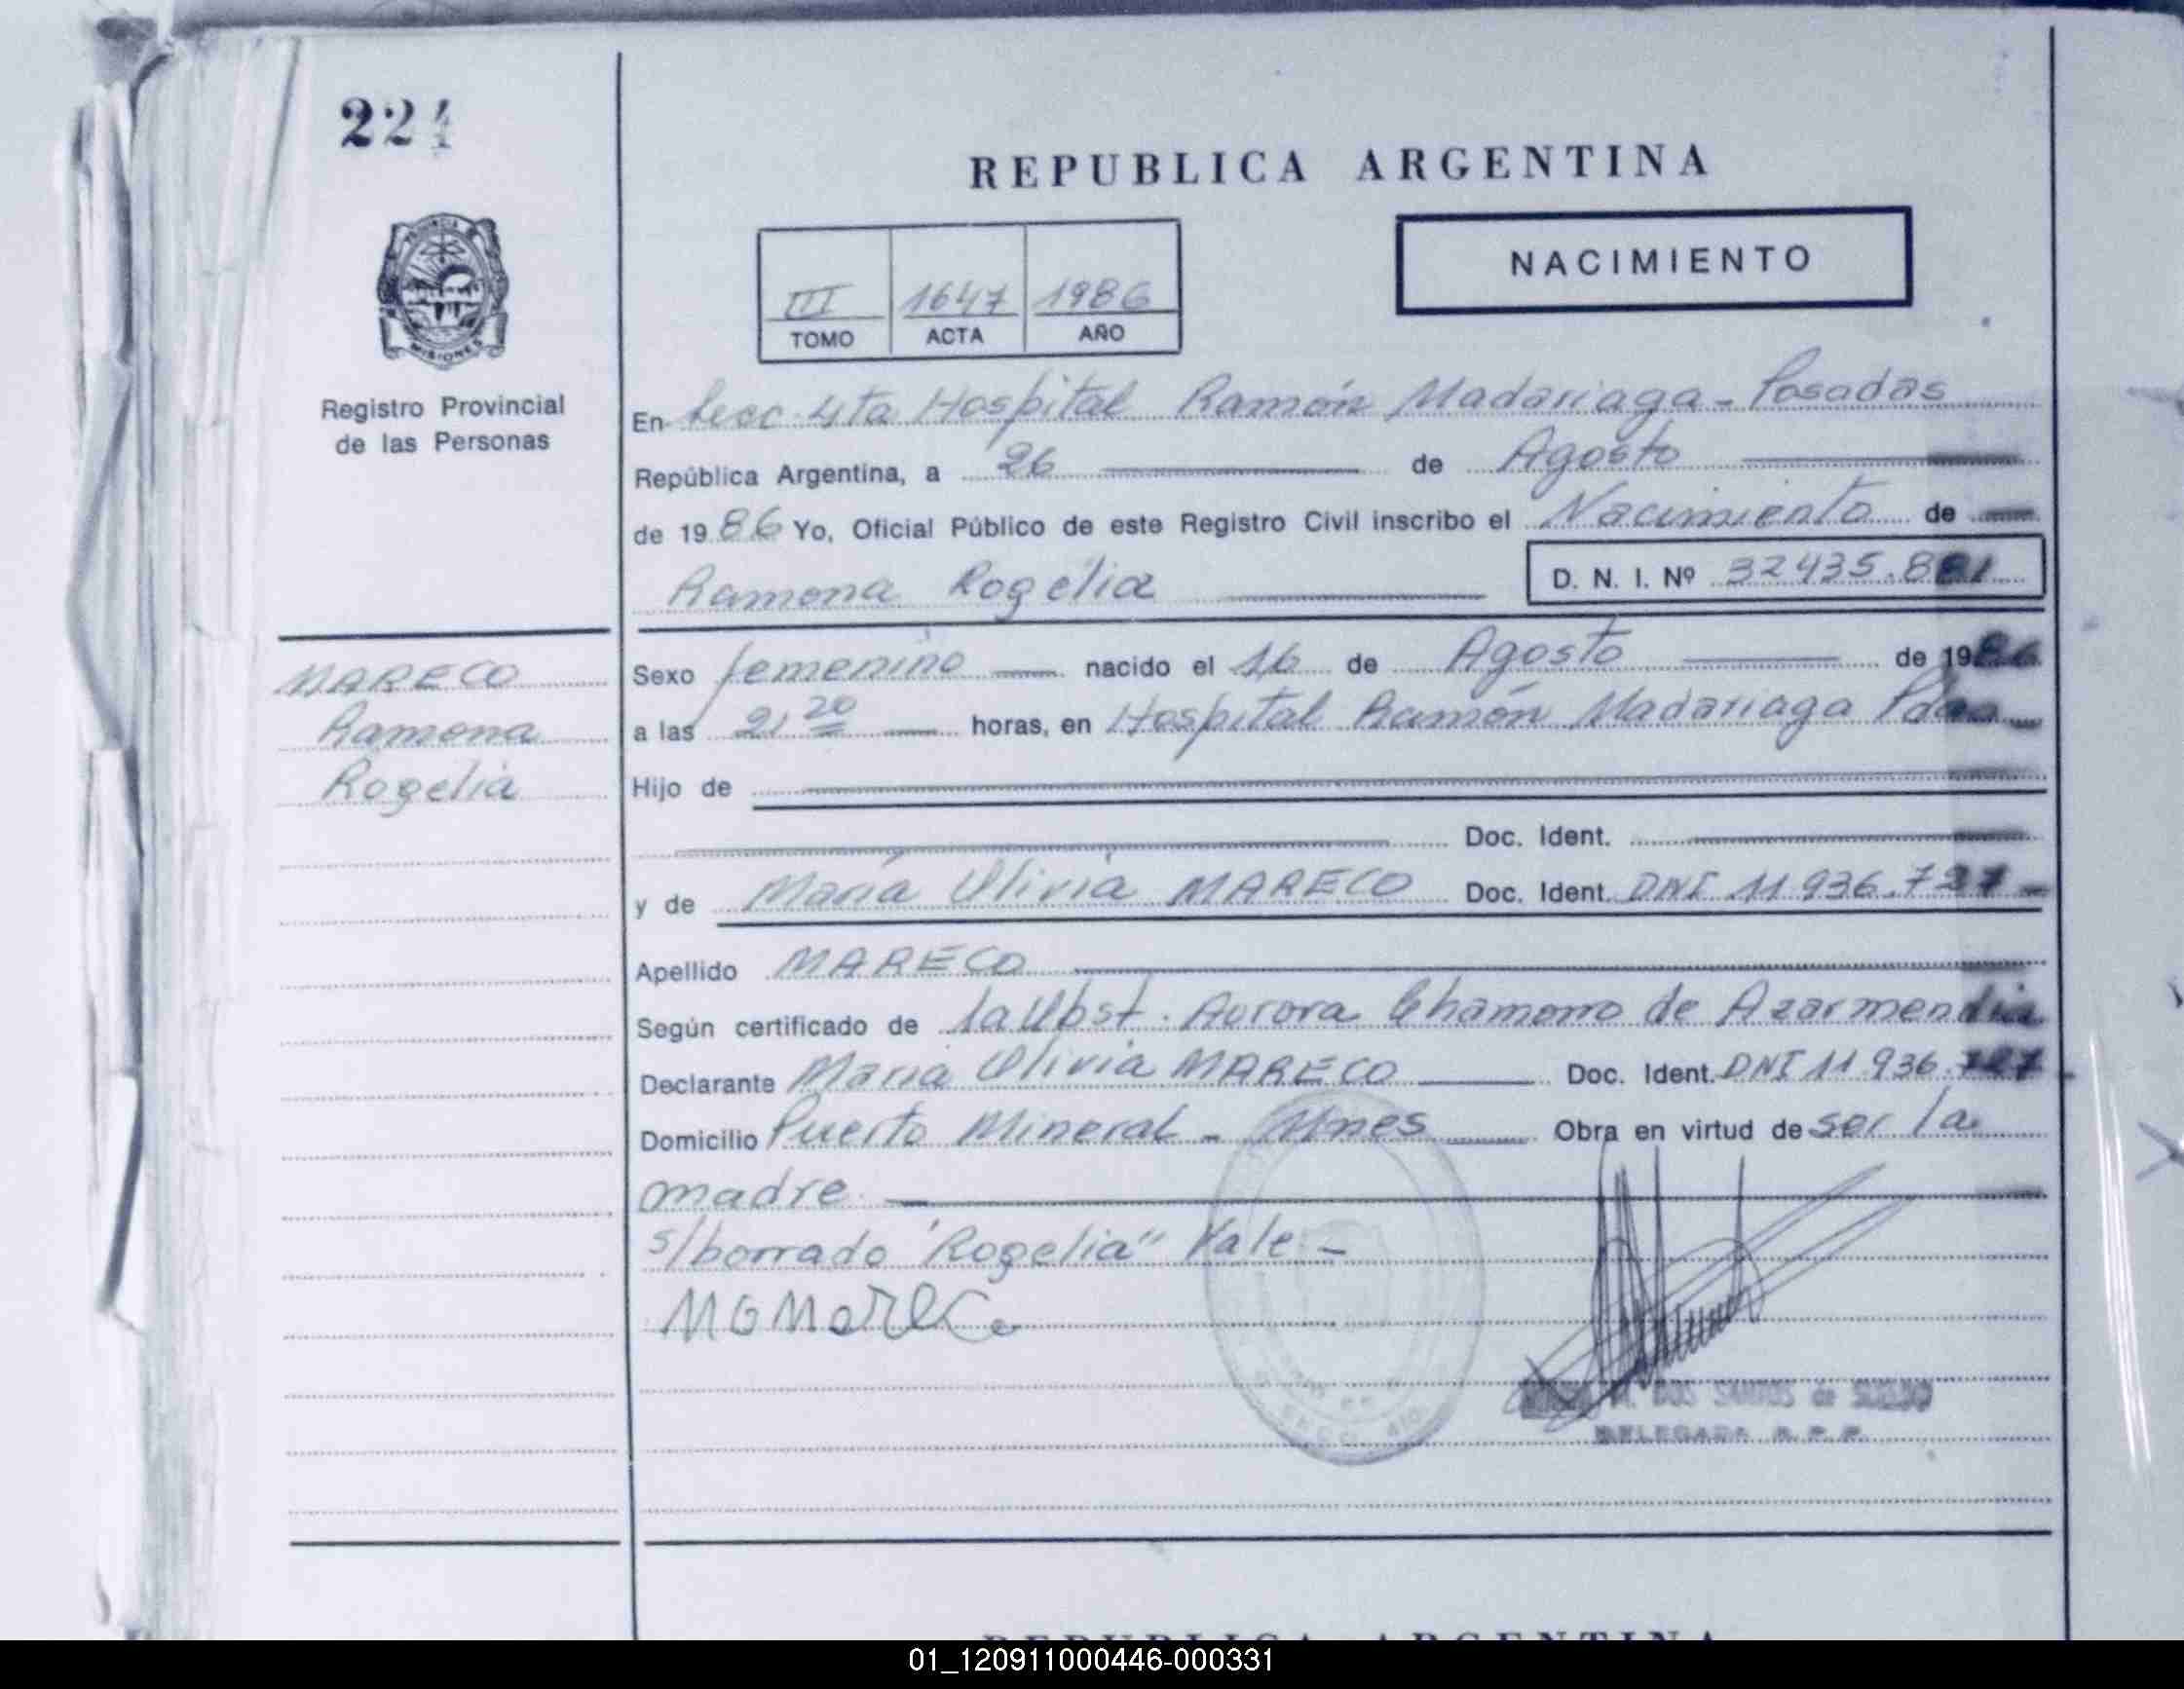 224
REPUBLICA ARGENTINA
NACIMIENTO
III 1647 1986
TOMO ACTA AÑO
MISIONES
Registro Provincial
de las Personas
En Secc 4ta Hospital Ramón Madariaga - Posadas
República Argentina, a 26 de Agosto
de 1986 Yo, Oficial Público de este Registro Civil inscribo el Nacimiento de
Ramona Rogelia D. N. I. Nº 32435.881
MARECO
Ramona
Rogelia
Sexo femenino nacido el 16 de Agosto de 1986
a las 21 20 horas, en Hospital Ramón Madariaga Pdas
Hijo de
Doc. Ident.
y de María Olivia MARECO Doc. Ident. DNI 11 936.727
Apellido MARECO
Según certificado de la Obst. Aurora Chamorro de Azarmendia
Declarante María Olivia MARECO Doc. Ident. DNI 11 936.727
Domicilio Puerto Mineral - Mnes Obra en virtud de ser la
madre
s/borrado "Rogelia" Vale -
M. DOS SANTOS de
DELEGADA R. P. P.
REPUBLICA ARGENTINA
01_120911000446-000331